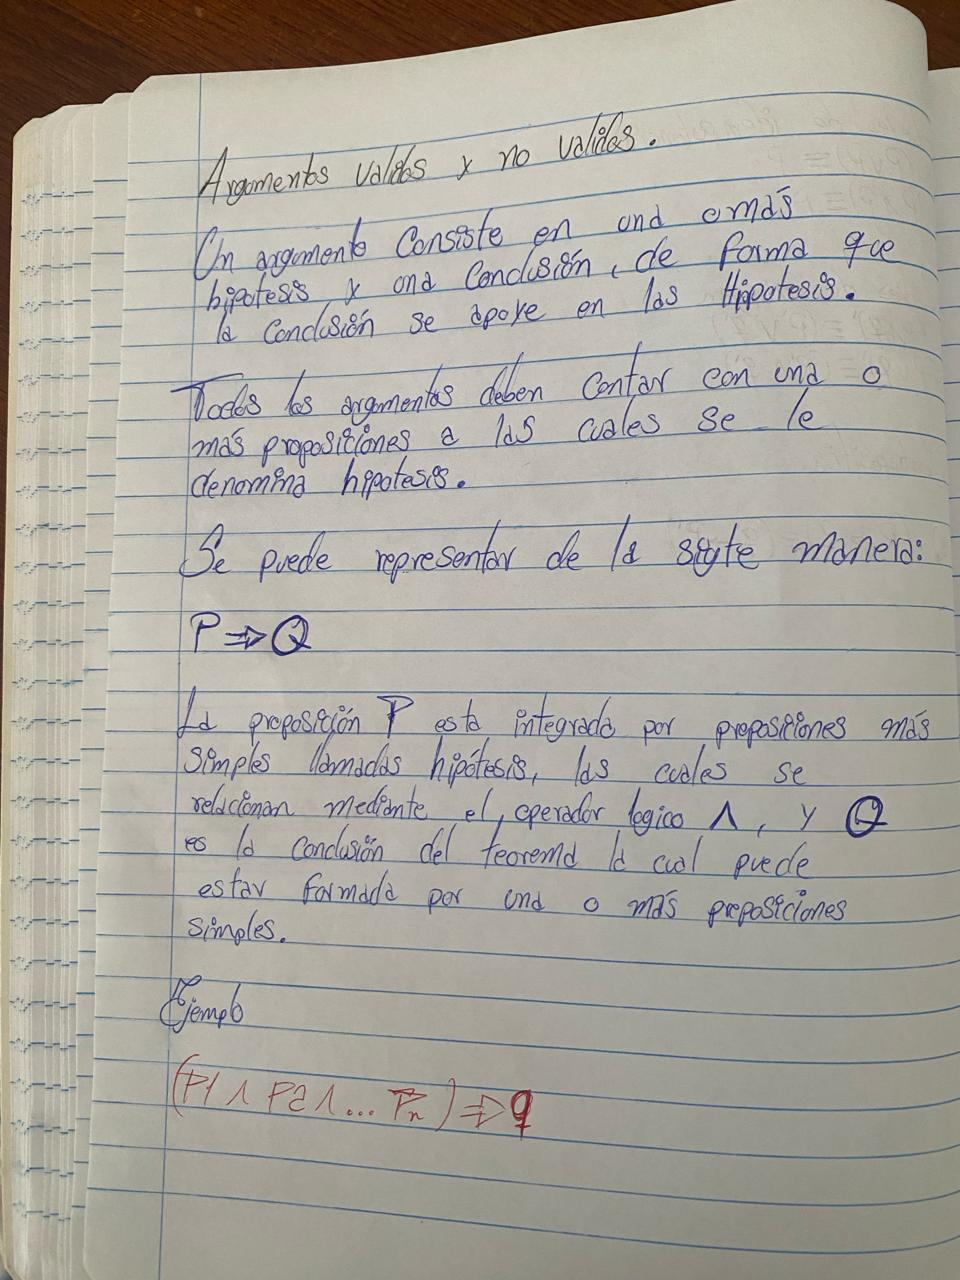 Argumentos validos y no validos.
Un argumento consiste en una o más
hipotesis y una conclusión, de forma que
la conclusión se apoye en las Hipotesis.
Todos los argumentos deben contar con una o
más proposiciones a las cuales se le
denomina hipotesis.
Se puede representar de la sigte manera:
P ⇒ Q
La proposición P esta integrada por proposiciones más
simples llamadas hipótesis, las cuales se
relacionan mediante el, operador logico ∧, y Q
es la conclusión del teorema la cual puede
estar formada por una o más preposiciones
simples.
Ejemplo
(P1 ∧ P2 ∧ ... Pn) ⇒ q